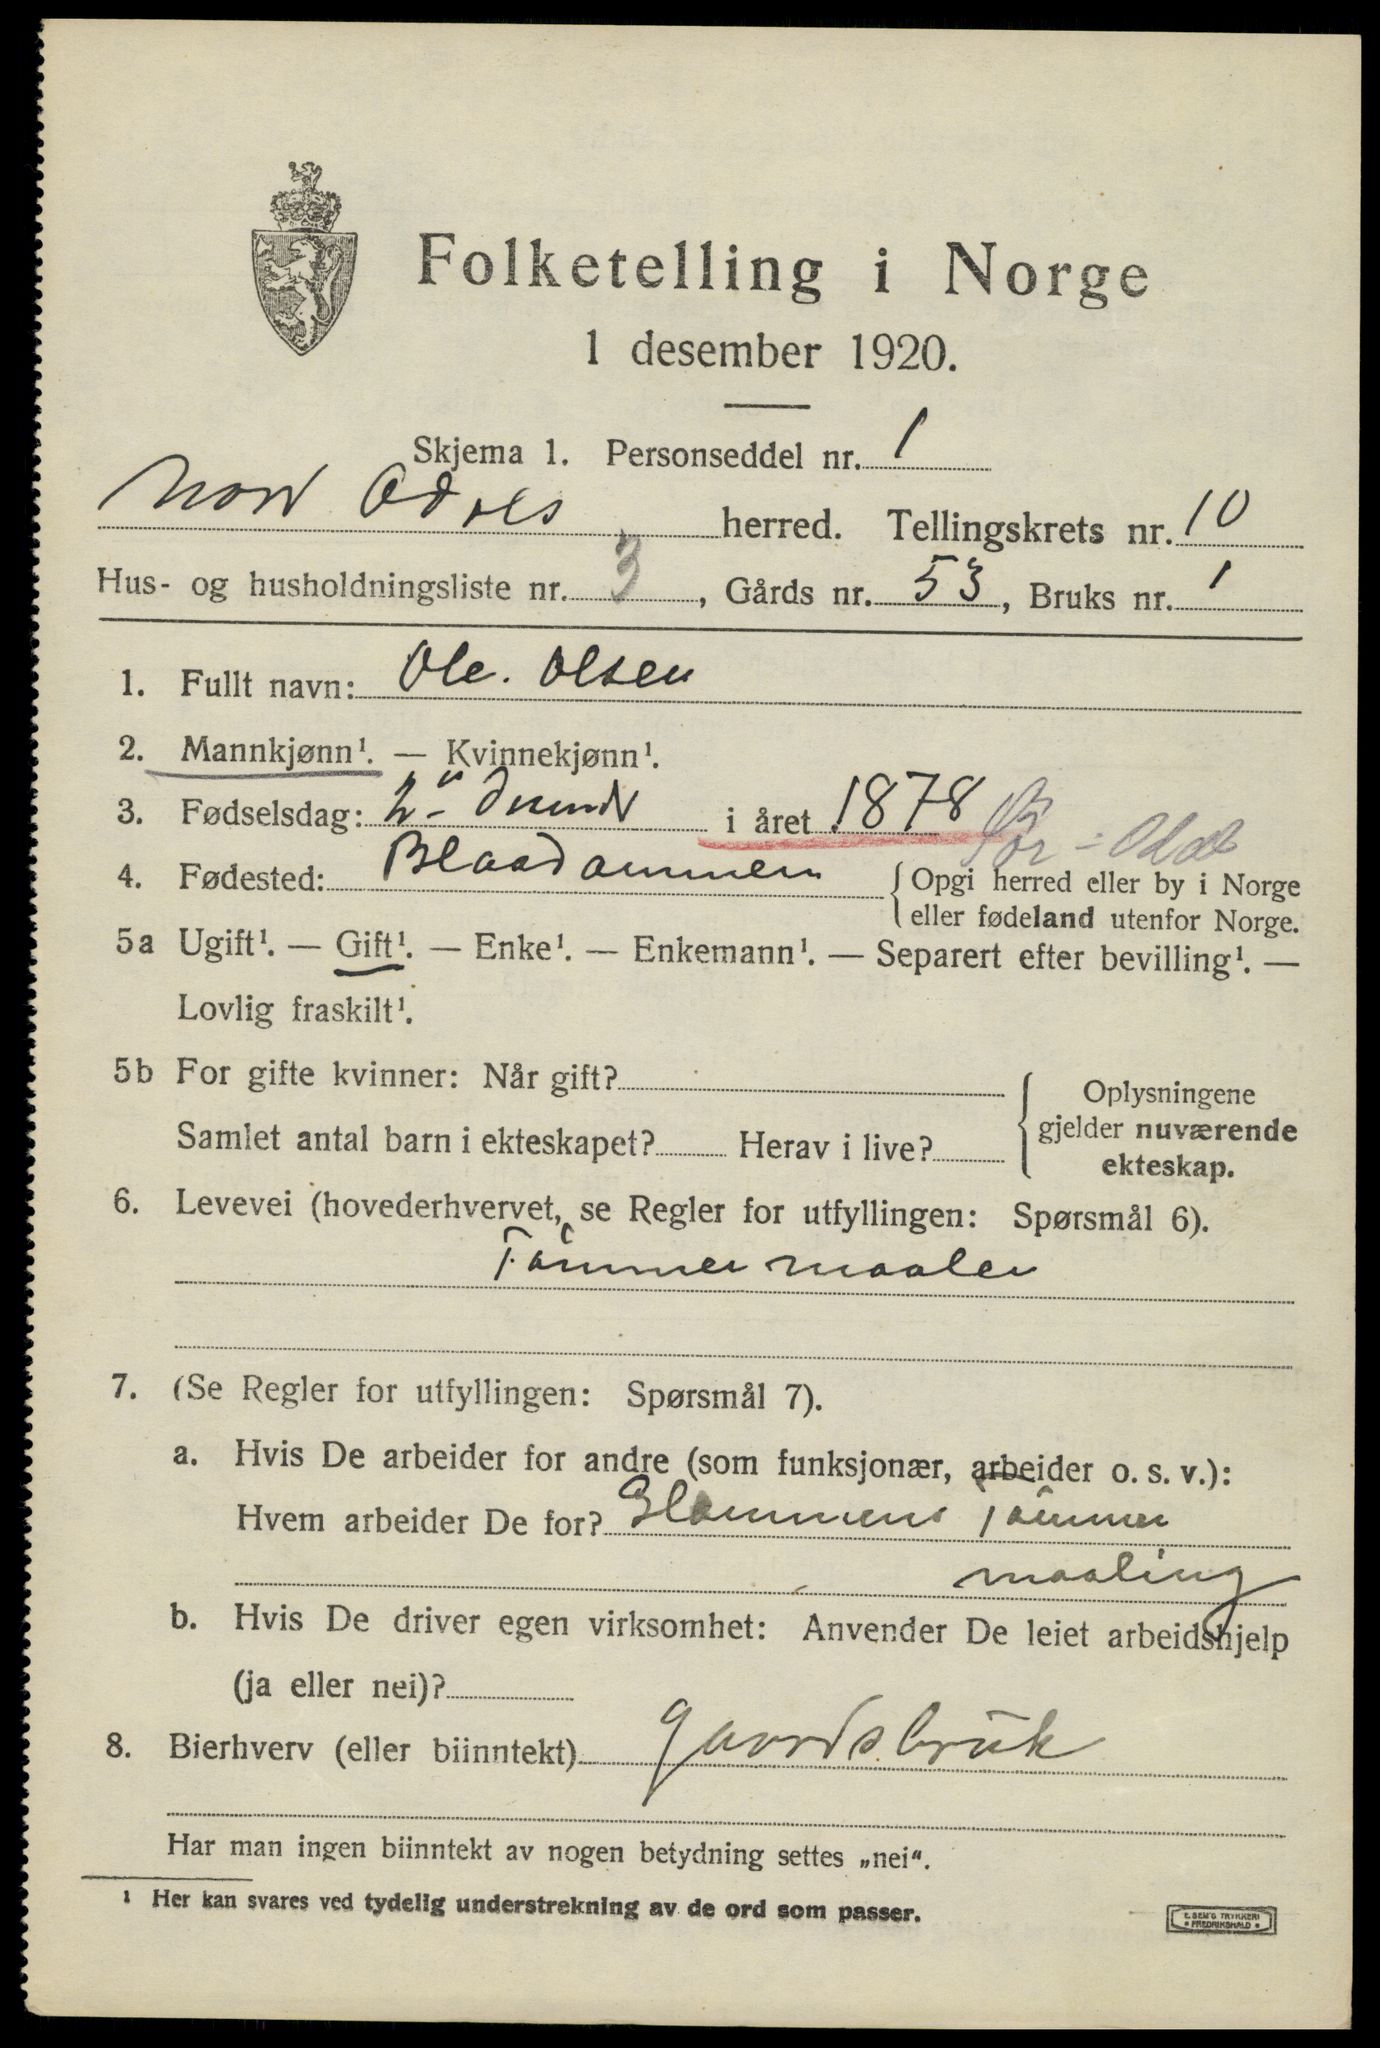 Folketelling i Norge
1 desember 1920.
Skjema 1. Personseddel nr. 1
Nord Odals herred. Tellingskrets nr. 10
Hus- og husholdningsliste nr. 3, Gårds nr. 53, Bruks nr. 1
1. Fullt navn: Ole. Olsen
2. Mannkjønn¹. — Kvinnekjønn¹.
3. Fødselsdag: i året 1878
4. Fødested: { Opgi herred eller by i Norge
eller fødeland utenfor Norge.
5a Ugift¹. — Gift¹. — Enke¹. — Enkemann¹. — Separert efter bevilling¹. —
Lovlig fraskilt¹.
5b For gifte kvinner: Når gift? { Oplysningene
gjelder nuværende
Samlet antal barn i ekteskapet? Herav i live?
ekteskap.
6. Levevei (hovederhvervet, se Regler for utfyllingen: Spørsmål 6).
Tømmer maaler
7. (Se Regler for utfyllingen: Spørsmål 7).
a. Hvis De arbeider for andre (som funksjonær, arbeider o. s. v.):
Hvem arbeider De for? Glommens Tømmer
maaling
b. Hvis De driver egen virksomhet: Anvender De leiet arbeidshjelp
(ja eller nei)?
8. Bierhverv (eller biinntekt) gaardsbruk
Har man ingen biinntekt av nogen betydning settes „nei“.
¹ Her kan svares ved tydelig understrekning av de ord som passer.
E. SEM'S TRYKKERI
FREDRIKSHALD